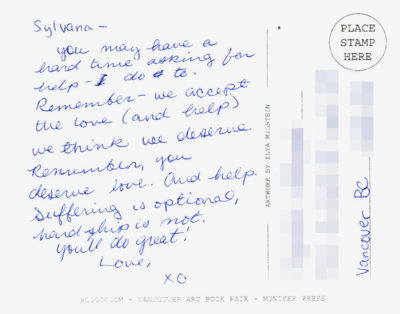 Sylvana—
you may have a
hard time asking for
help - I do to.
Remember - we accept
the love (and help)
we think we deserve
Remember, you
deserve love. And help.
Suffering is optional,
hardship is not.
You'll do great!
Love,
XO
PLACE
STAMP
HERE
ARTWORK BY ILYA MILSTEIN
Vancouver BC
VANCOUVER ART BOOK FAIR - MONIKER PRESS